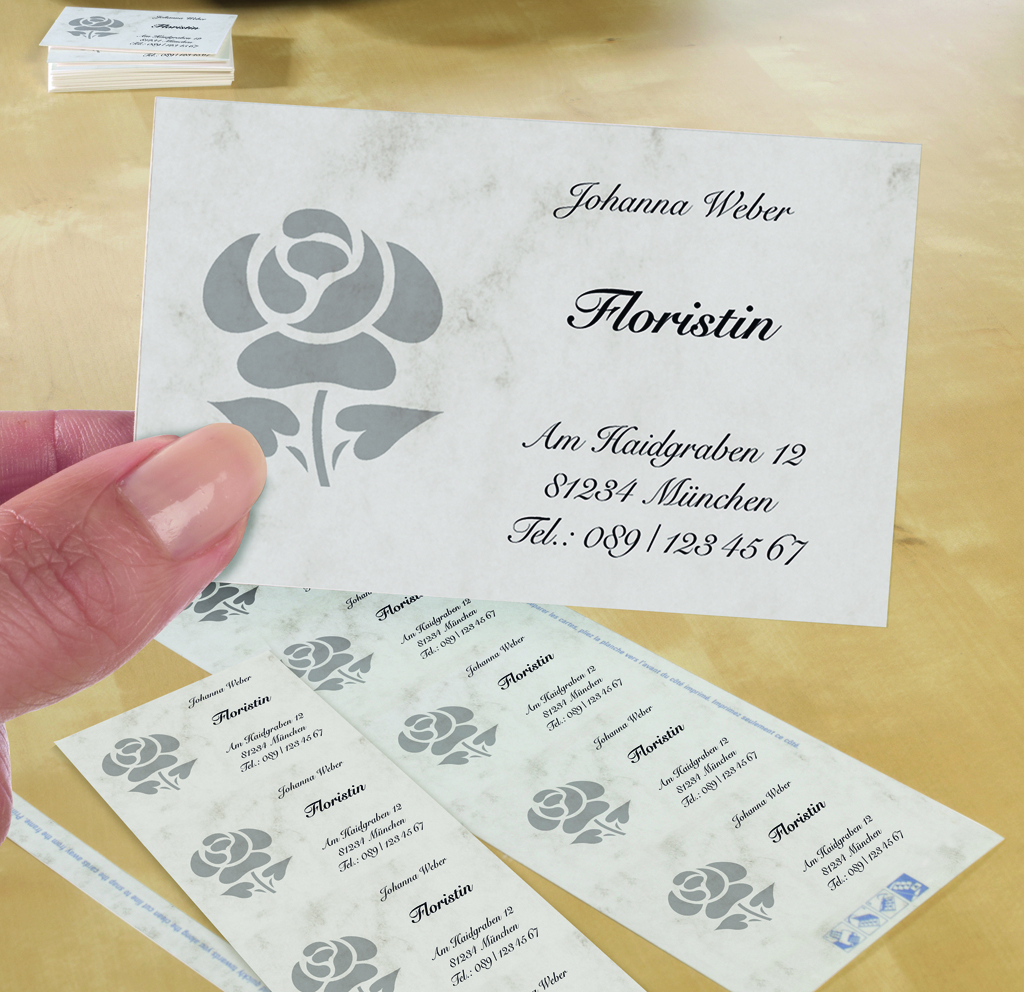 Johanna Weber
Floristin
Am Haidgraben 12
81234 München
Tel.: 089 | 123 45 67
Johanna Weber
Floristin
Am Haidgraben 12
81234 München
Tel.: 089 | 123 45 67
Floristin
Am Haidgraben 12
81234 München
Tel.: 089 | 123 45 67
Johanna Weber
Floristin
Am Haidgraben 12
81234 München
Tel.: 089 | 123 45 67
Johanna Weber
Floristin
Am Haidgraben 12
81234 München
Tel.: 089 | 123 45 67
Johanna Weber
Floristin
Am Haidgraben 12
81234 München
Tel.: 089 | 123 45 67
les cartes, pliez la planche vers l'avant du côté imprimé. Imprimez seulement ce côté.
Johanna Weber
Floristin
Am Haidgraben 12
81234 München
Tel.: 089 | 123 45 67
Johanna Weber
Floristin
Am Haidgraben 12
81234 München
Tel.: 089 | 123 45 67
Johanna Weber
Floristin
Am Haidgraben 12
81234 München
Tel.: 089 | 123 45 67
Johanna Weber